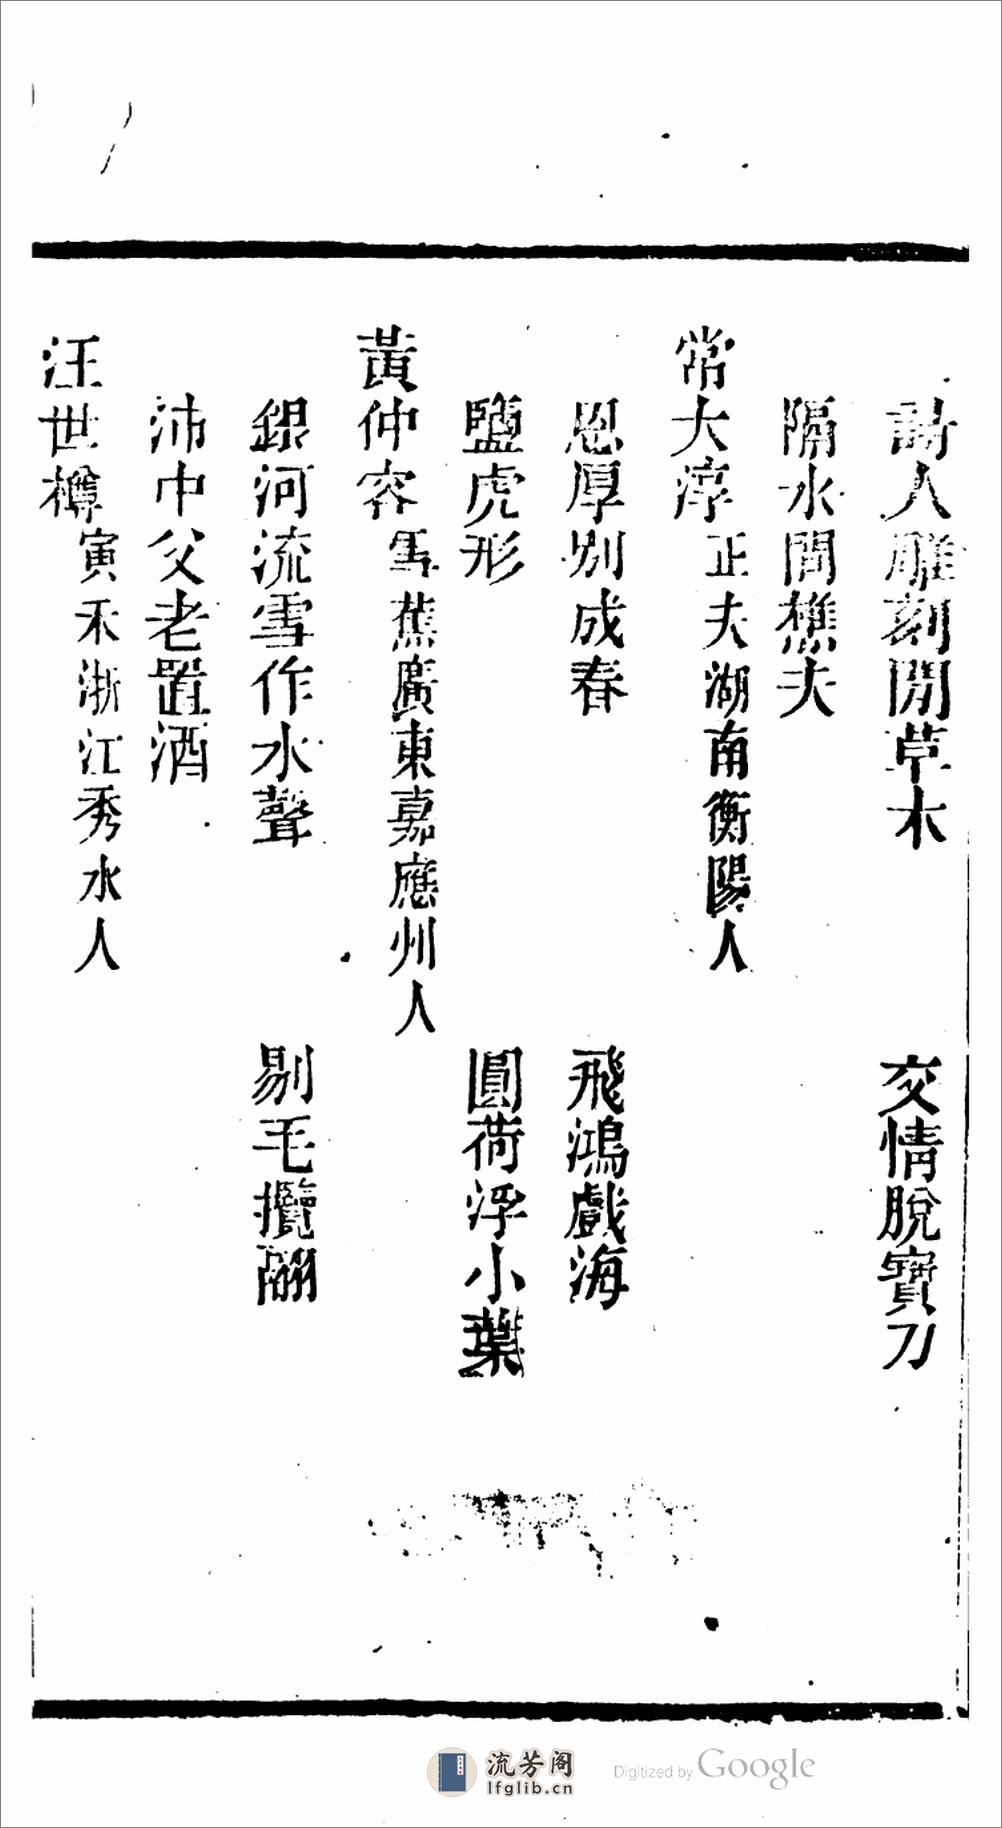 詩人雕刻閒草木　交情脫寶刀
隔水問樵夫
常大淳正夫湖南衡陽人
恩厚別成春　飛鴻戲海
鹽虎形　圓荷浮小葉
黃仲容蕉廣東嘉應州人
銀河流雪作水聲　剔毛攬翮
沛中父老置酒
汪世樽寅禾浙江秀水人
流芳阁
lfglib.cn
Digitized by Google